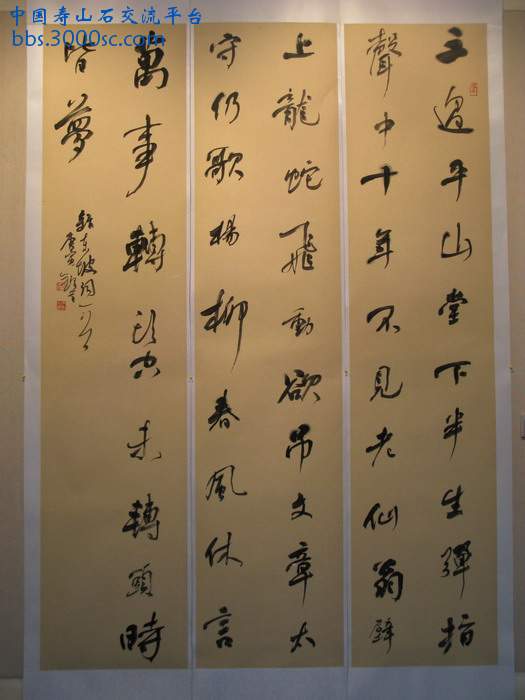 中国寿山石交流平台
bbs.3000sc.com
三過平山堂下半生彈指
聲中十年不見老仙翁壁
上龍蛇飛動欲吊文章太
守仍歌楊柳春風休言
萬事轉头空未轉頭時
皆夢
録東坡詞一首
庚寅